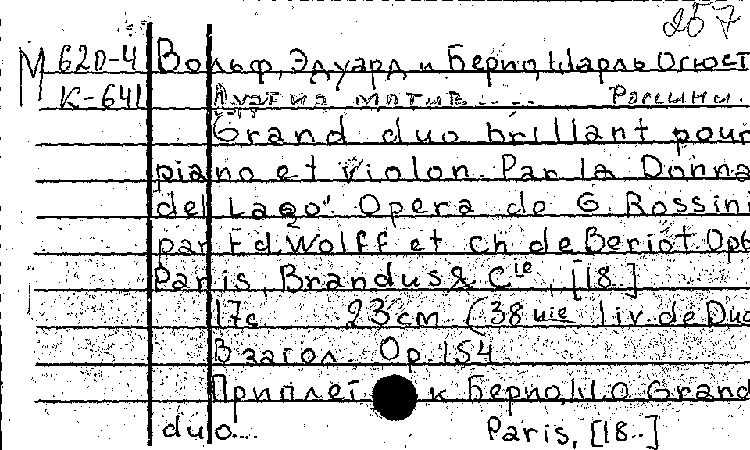 257
М 620-4 Вольф, Эдуард и Берио, Шарль Огюст
К-641 мотив.... Россини.
Grand duo brillant pour
piano et violon. Par la Donna
del Lago". Opera de G. Rossini
par Ed. Wolff et Ch de Beriot. Op6
Paris, Brandus & Cie, [18.]
17с 23 cm (38 uie liv. de Duo
В загол. Op. 154.
Приплет к Берио, Ш.О. Grand
duo.... Paris, [18..]